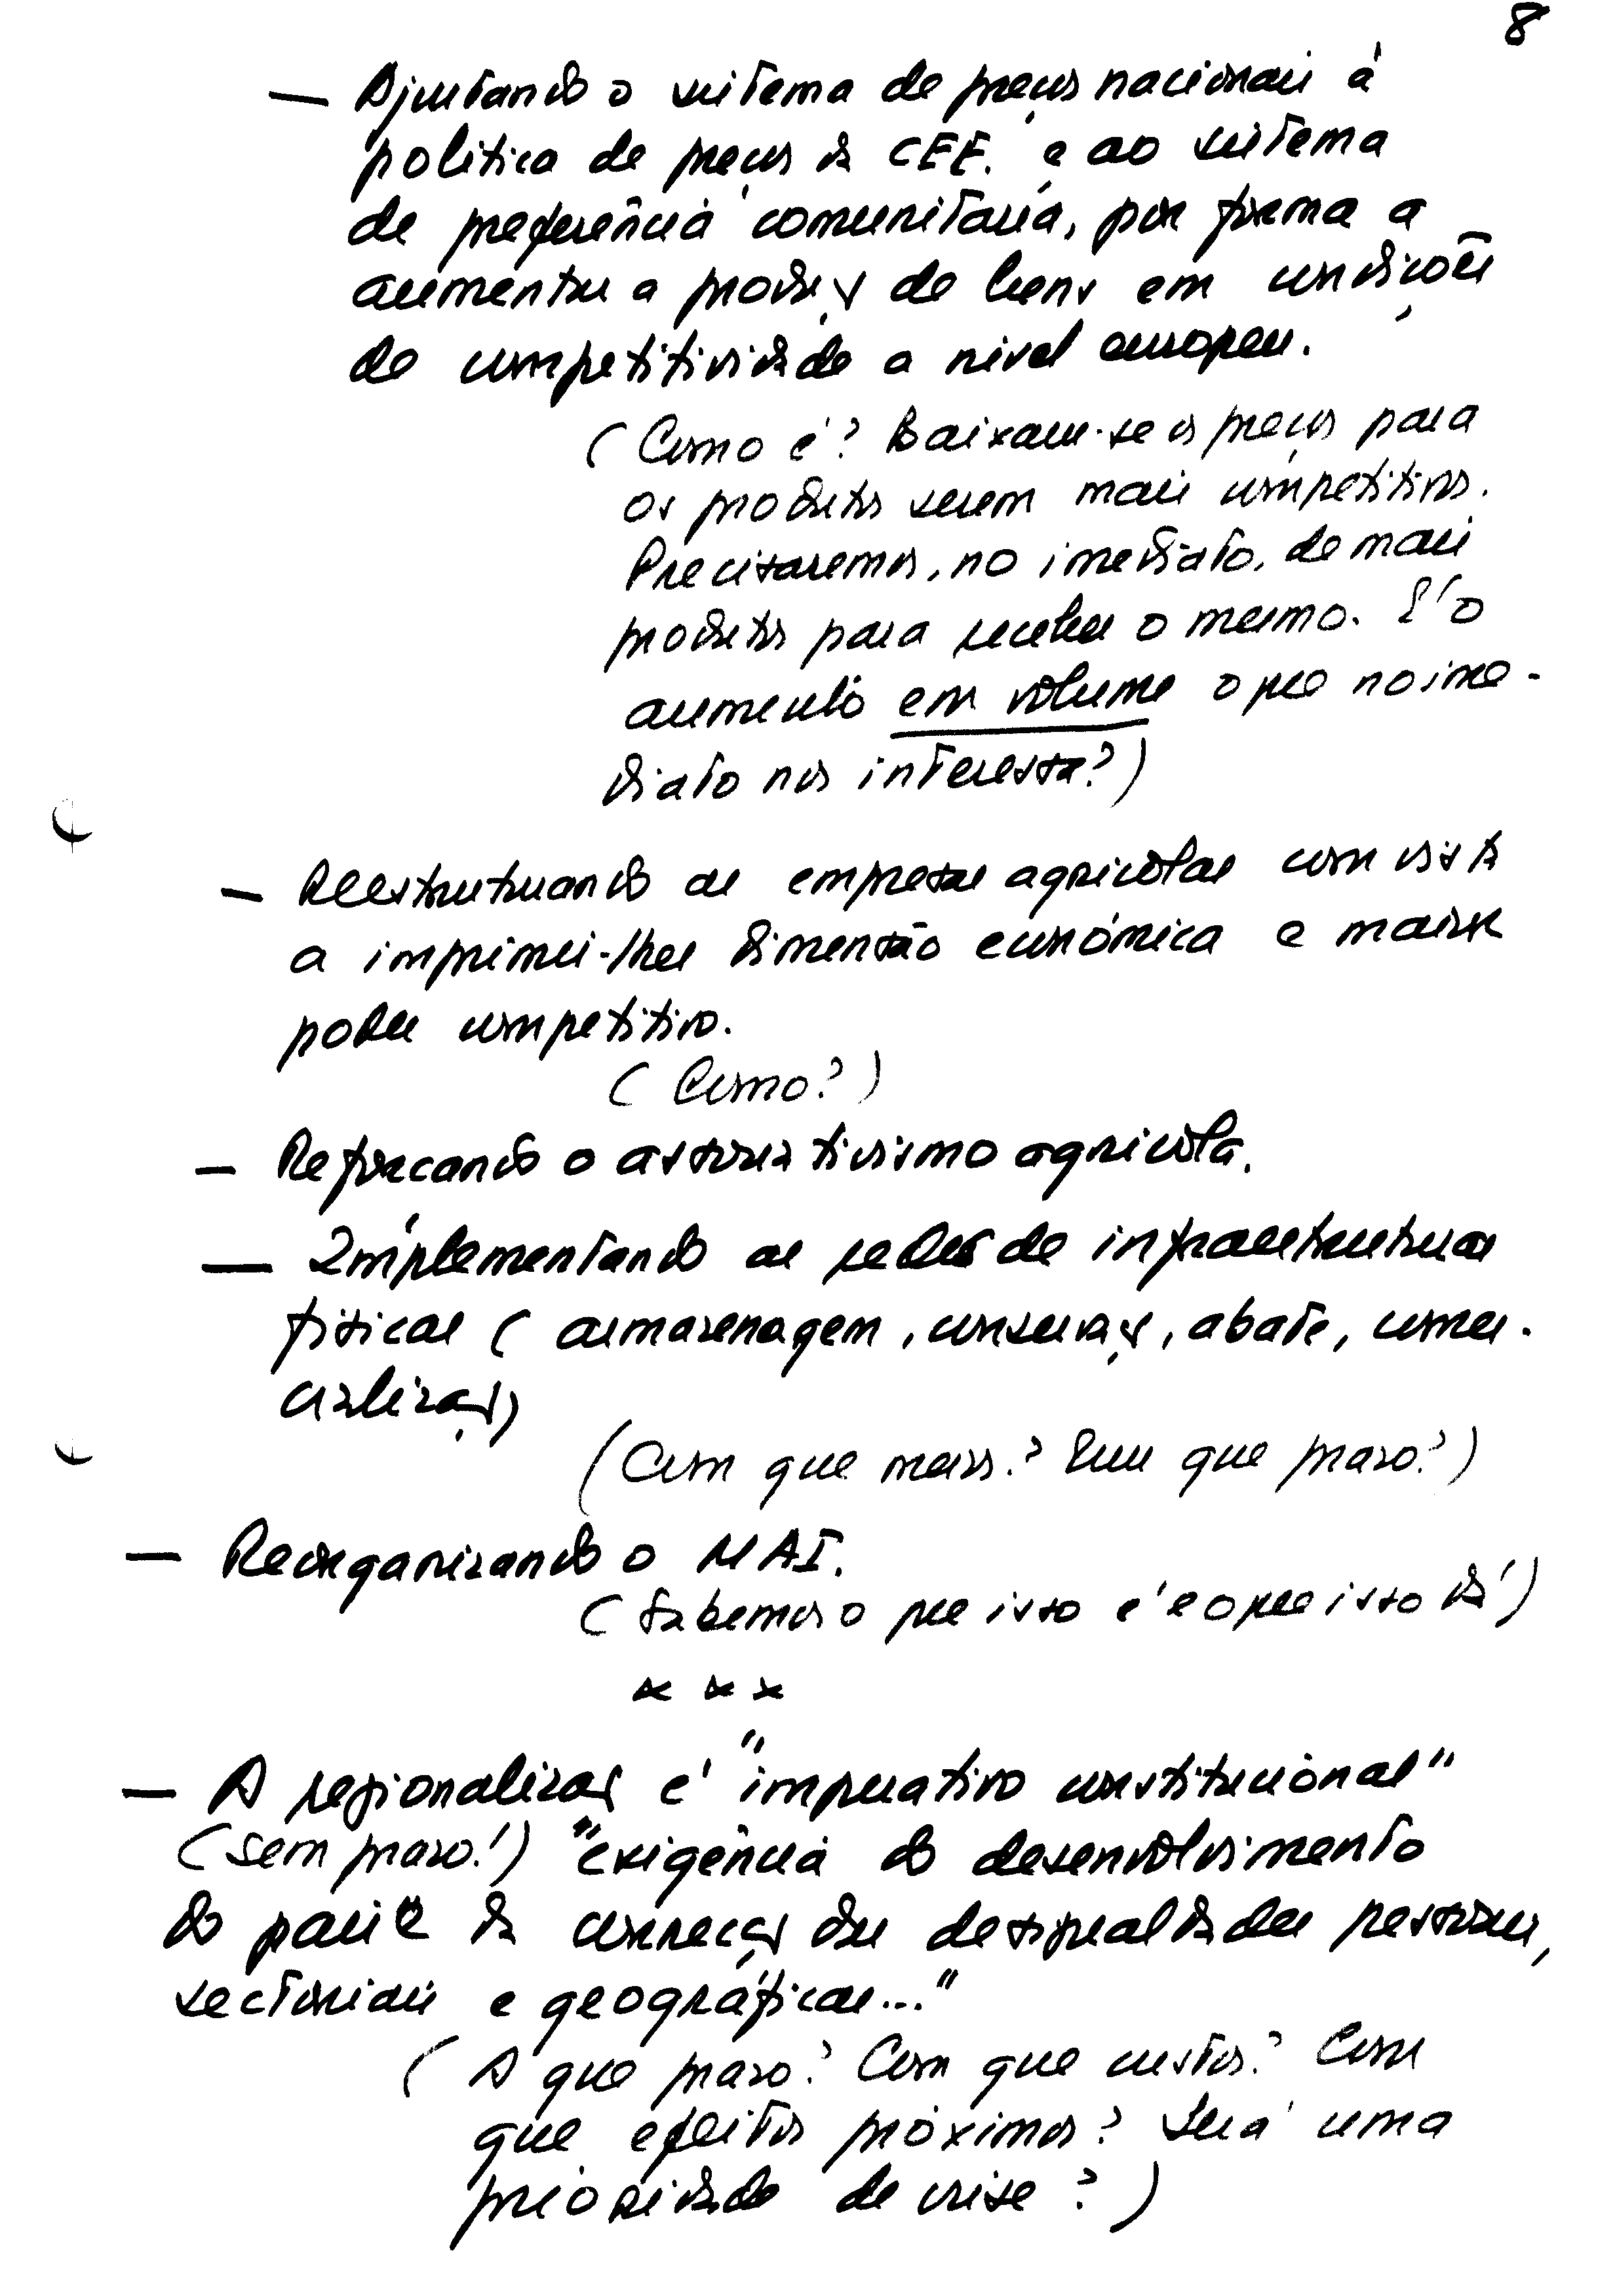 8
— Ajustando o sistema de preços nacionais à
política de preços da CEE. e ao sistema
de preferência comunitária, por forma a
aumentar a produção de bens em condições
de competitividade a nível europeu.
(Como é? Baixam-se os preços para
os produtos serem mais competitivos.
Precisaremos, no imediato, de mais
produtos para receber o mesmo. É o
aumento em volume o que no ime-
diato nos interessa?)
— Reestruturando as empresas agrícolas com vista
a imprimir-lhes dimensão económica e maior
poder competitivo.
(Como?)
— Reforçando o associativismo agrícola.
— Implementando as redes de infraestruturas
físicas (armazenagem, conservação, abate, comer-
cialização)
(Com que meios? Em que prazo?)
— Reorganizando o MAI.
(Sabemos o que isso é e o que isso dá)
* * *
— A regionalização é "imperativo constitucional"
(sem prazo!) "exigência do desenvolvimento
do país e da correcção das desigualdades pessoais,
sectoriais e geográficas..."
(A que prazo? Com que custos? Com
que efeitos próximos? Será uma
prioridade de crise?)